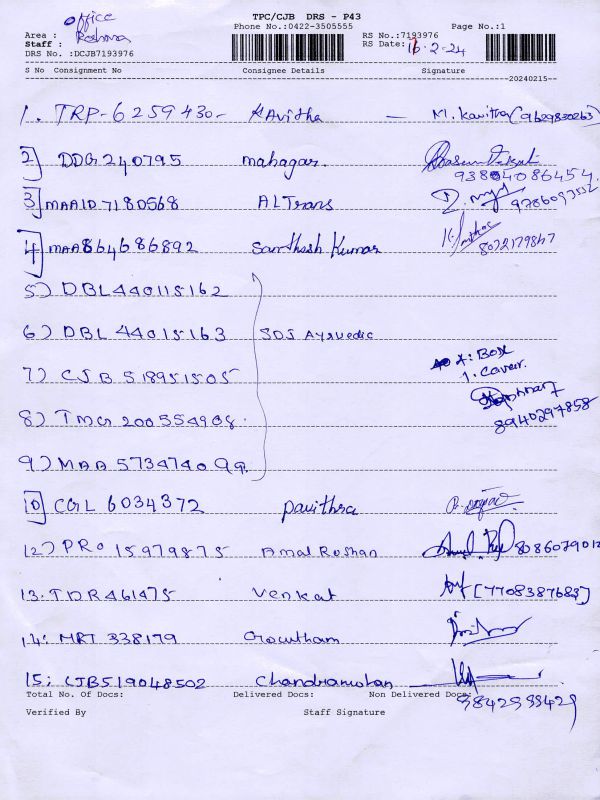 TPC/CJB DRS - P43
office
Phone No.:0422-3505555 Page No.:1
Area : Roshna RS No.:7193976
Staff : RS Date: 16-2-24
DRS No. :DCJB7193976
S No Consignment No Consignee Details Signature
20240215--
1. TRP-6259430- KAvitha — M. Kavitha (9629830263)
2] DDG240795 mahagar.
93804086454
3] MAA1D7180568 ALTrans
4] MAA864686892 Santhosh Kumar
8072179847
5) DBL440115162
6) DBL 44015163 SDS Ayrvedic
7: Box
7) CJB 518951505 1. Caver.
8) TMG 200554908. 8940297858
9) MAA 573474099.
10] CGL 6034372 pavithra
12) PRO 15979875 Amal Roshan
13. TDR461475 Venkat [7708387683]
14: MRT 338179 Gowtham
15; CJB519048502 Chandramohan
Total No. Of Docs: Delivered Docs: Non Delivered Docs:
9842599429
Verified By Staff Signature